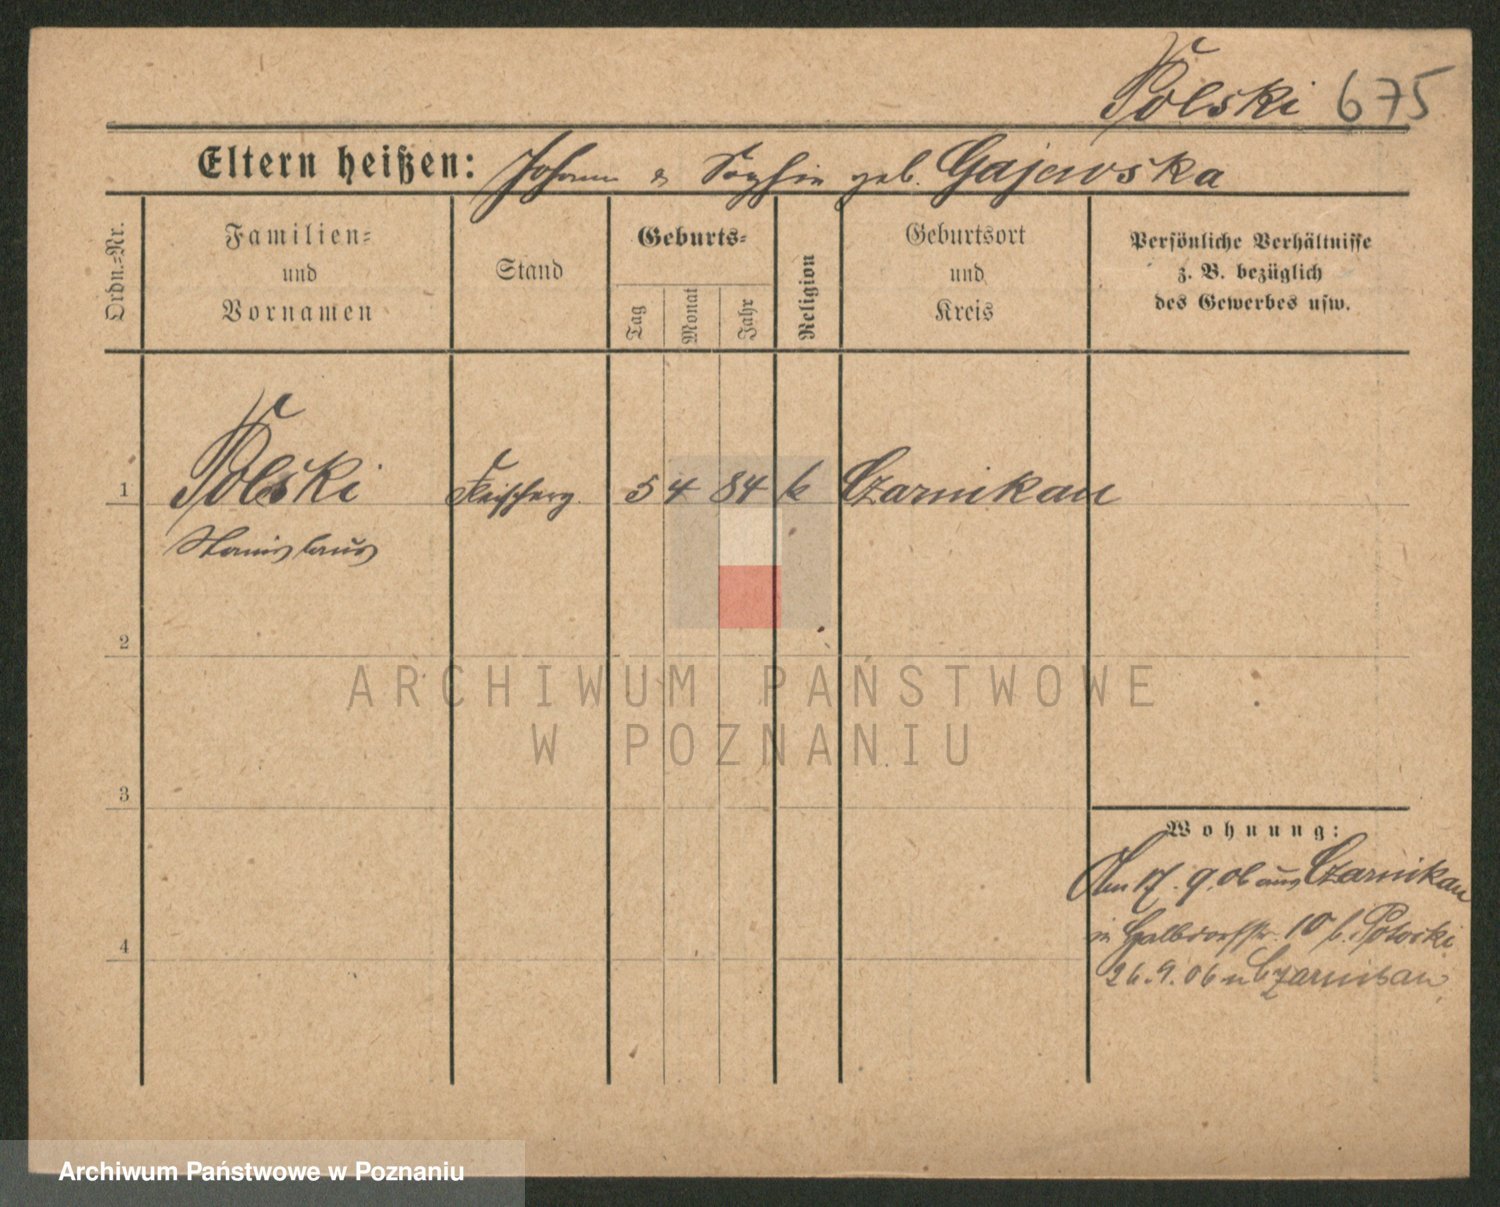 Polski 675
Eltern heißen: Johann & Sophie geb. Gajewska
Ordn.=Nr.
Familien=
und
Vornamen
Stand
Geburts=
Tag
Monat
Jahr
Religion
Geburtsort
und
Kreis
Persönliche Verhältnisse
z. B. bezüglich
des Gewerbes usw.
1 Polski Fleischerg. 5 4 84 k Czarnikau
Stanislaus
2
ARCHIWUM PAŃSTWOWE
W POZNANIU
3
Wohnung:
Am 17. 9. 06 aus Czarnikau
in Halbdorfstr. 10 b.
4
26. 9. 06 n Czarnikau
Archiwum Państwowe w Poznaniu